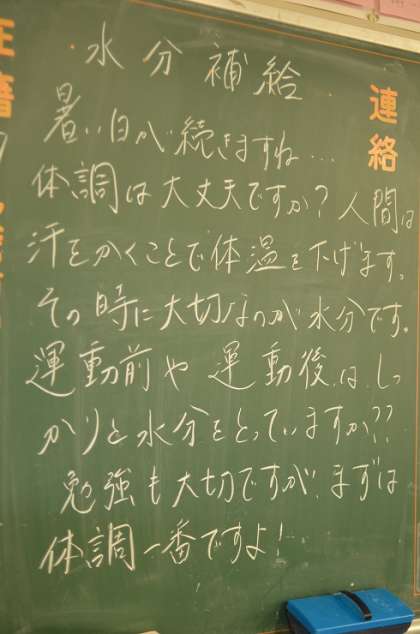 水分補給
連絡
暑い日が続きますね…
体調は大丈夫ですか？人間は
汗をかくことで体温を下げます。
その時に大切なのが水分です。
運動前や運動後は、しっ
かりと水分をとっていますか？？
勉強も大切ですが、まずは
体調一番ですよ！